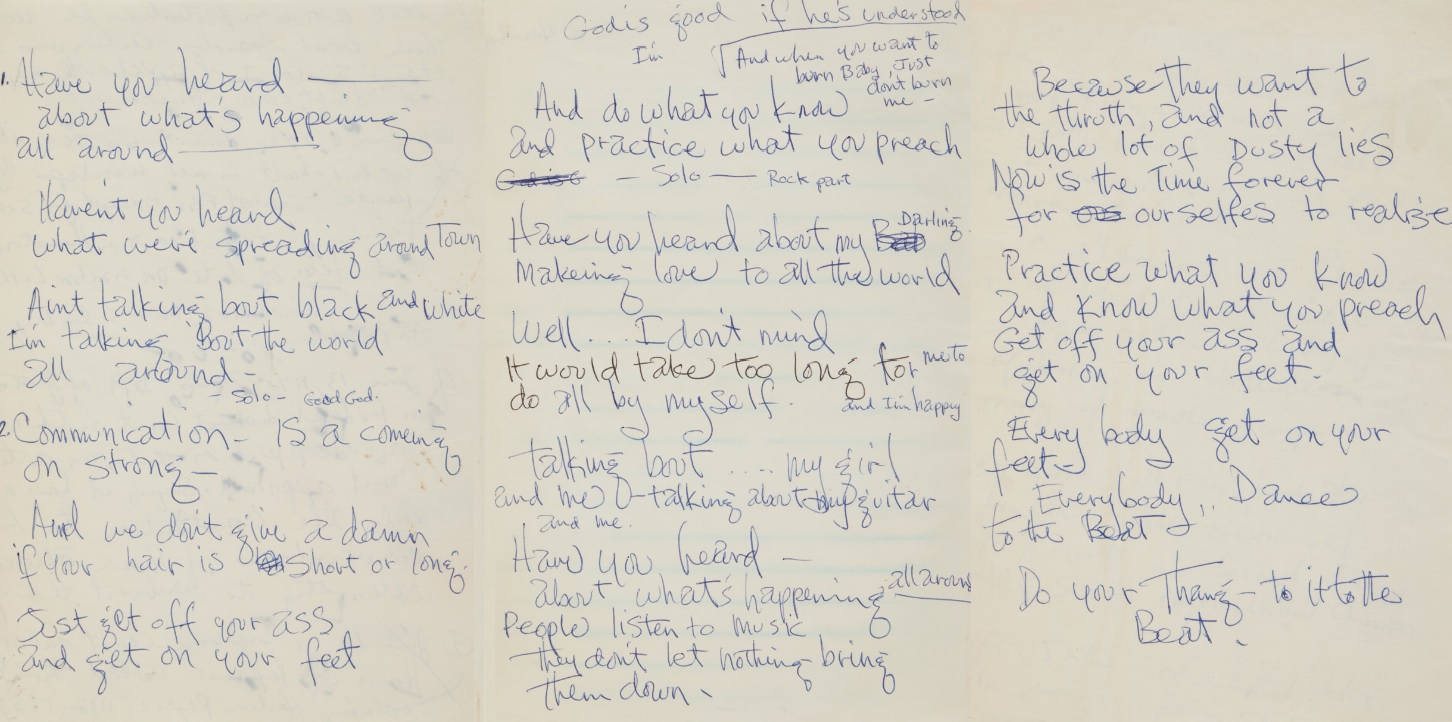 1. Have you heard —
about what's happening
all around —
Havent you heard
what we're spreading around Town
Aint talking bout black and white
I'm talking 'Bout the world
all around –
– Solo – Good God.
2. Communication – Is a comeing
on strong –
And we don't give a damn
if your hair is short or long.
Just get off your ass
and get on your feet
God is good if he's understood
I'm
And when you want to
burn Baby, Just
don't burn
me –
And do what you know
and practice what you preach
— Solo — Rock part
Have you heard about my Darling
Makeing love to all the world
Well.... I don't mind
It would take too long for me to
do all by myself. and I'm happy
talking bout .... my girl
and me – talking about my guitar
and me.
Have you heard –
about what's happening all around
People listen to music
they don't let nothing bring
them down.
Because they want to
the thruth, and not a
whole lot of Dusty lies
Now is the Time forever
for ourselfes to realize
Practice what you know
and know what you preach
Get off your ass and
get on your feet.
Every body get on your
feet –
Everybody,.. Dance
to the Beat
Do your Thang – to it to the
Beat.